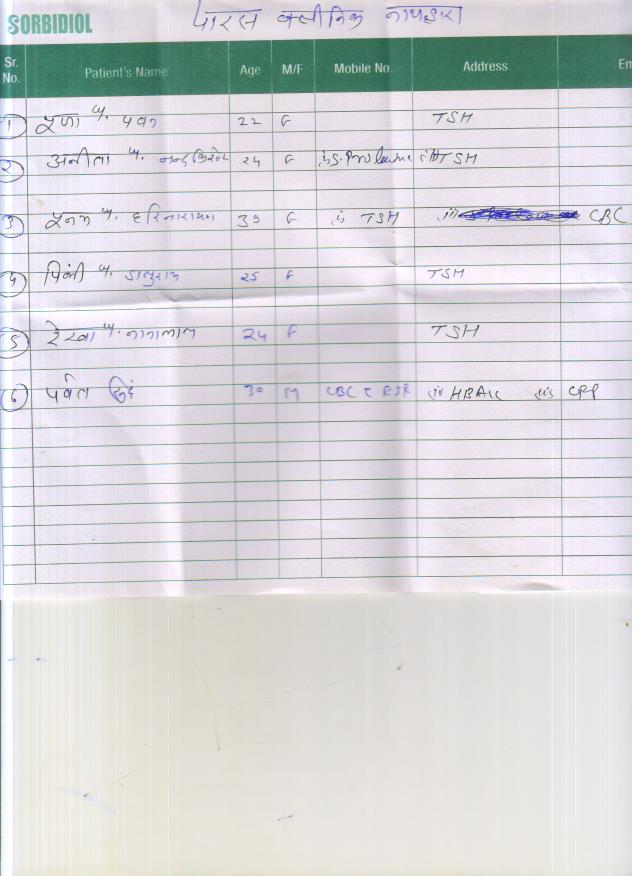 SORBIDIOL पारस क्लीनिक नाथद्वारा
Sr. No. Patient's Name Age M/F Mobile No. Address Em
1 पूजा w. पवन 22 F TSH
2 अनीता w. नन्दकिशोर 24 F i) S. Prolactin ii) TSH
3 पूनम w. हरिनारायण 39 F i) TSH ii) CBC
4 पिंकी w. 25 F TSH
5 रेखा w. 24 F TSH
6 पर्वत सिंह 30 M CBC ESR ii) HBA1c iii) CRP